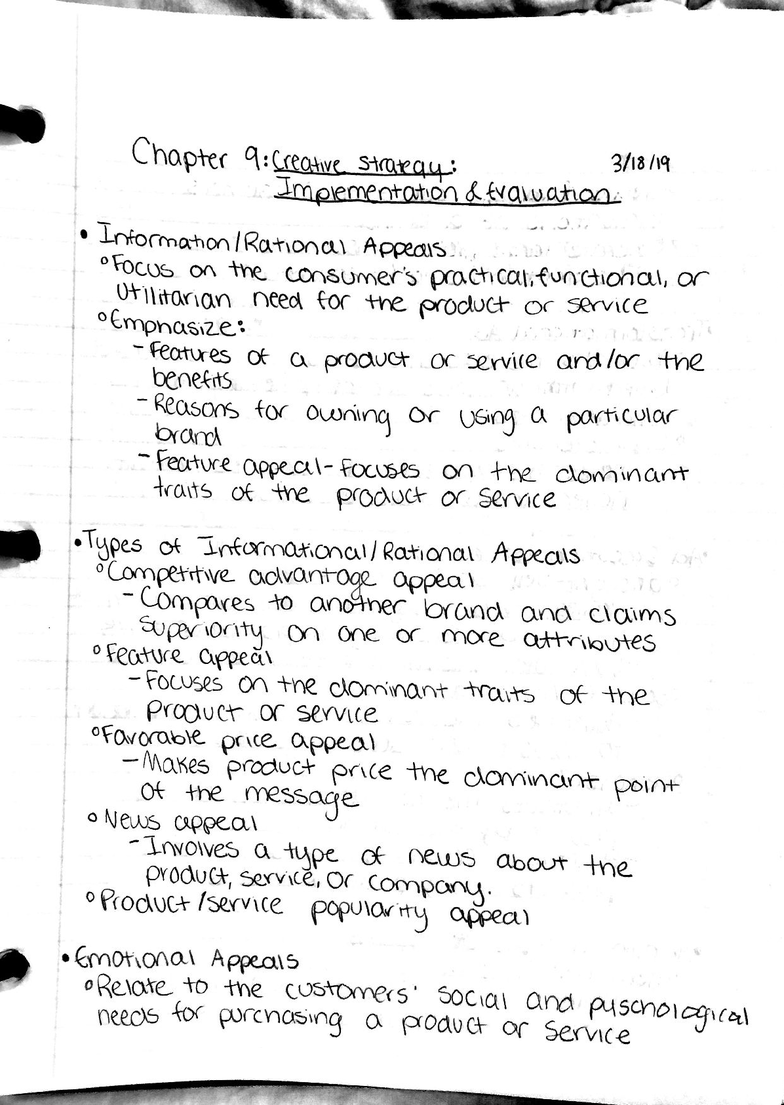 Chapter 9: Creative Strategy: 3/18/19
Implementation & Evaluation
• Information/Rational Appeals
° Focus on the consumer's practical, functional, or
utilitarian need for the product or service
° Emphasize:
- Features of a product or service and/or the
benefits
- Reasons for owning or using a particular
brand
- Feature appeal - Focuses on the dominant
traits of the product or service
• Types of Informational/Rational Appeals
° Competitive advantage appeal
- Compares to another brand and claims
superiority on one or more attributes
° Feature appeal
- Focuses on the dominant traits of the
product or service
° Favorable price appeal
- Makes product price the dominant point
of the message
° News appeal
- Involves a type of news about the
product, service, or company.
° Product/service popularity appeal
• Emotional Appeals
° Relate to the customers' social and pyschological
needs for purchasing a product or service